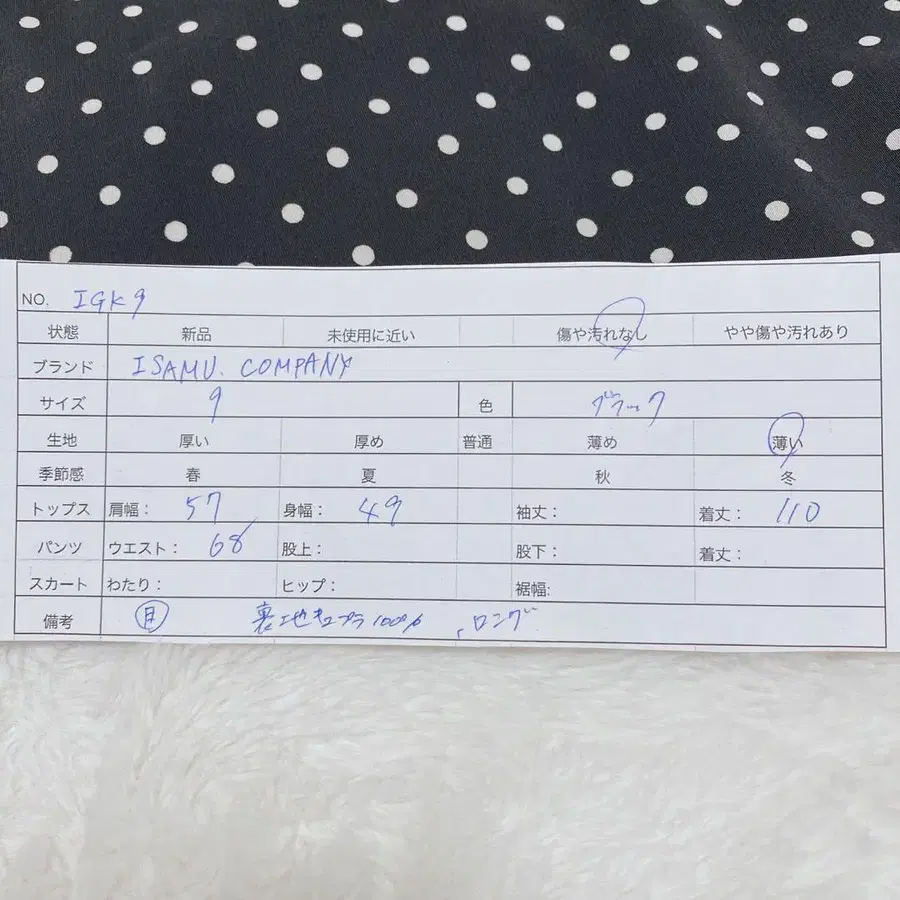 NO. IGK9
状態 新品 未使用に近い 傷や汚れなし やや傷や汚れあり
ブランド ISAMU. COMPANY
サイズ 9 色 ブラック
生地 厚い 厚め 普通 薄め 薄い
季節感 春 夏 秋 冬
トップス 肩幅： 57 身幅： 49 袖丈： 着丈： 110
パンツ ウエスト： 68 股上： 股下： 着丈：
スカート わたり： ヒップ： 裾幅:
備考 裏地キュプラ100% ロング